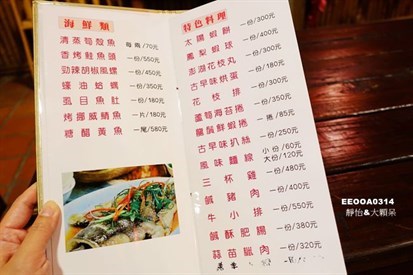 海鮮類
清蒸筍殼魚 每兩/70元
香烤鮭魚頭 一份/550元
勁辣胡椒風螺 一份/450元
蠔油蛤蠣 一份/350元
虱目魚肚 一份/180元
烤挪威鯖魚 一片/180元
糖醋黃魚 一尾/580元
特色料理
太陽蝦餅 一份/300元
鳳梨蝦球 一份/400元
澎湖花枝丸 一份/300元
古早味烘蛋 一份/180元
花枝排 一份/300元
蘆筍海苔捲 一份/250元
腐鬚鮮蝦捲 一捲/85元
古早味扒絲 一份/250元
風味麵線 小份/60元
大份/120元
三杯雞 一份/480元
鹹豬肉 一份/400元
牛小排 一份/550元
鹹酥肥腸 一份/380元
蒜苗臘肉 一份/320元
EEOOA0314
靜怡&大顆呆